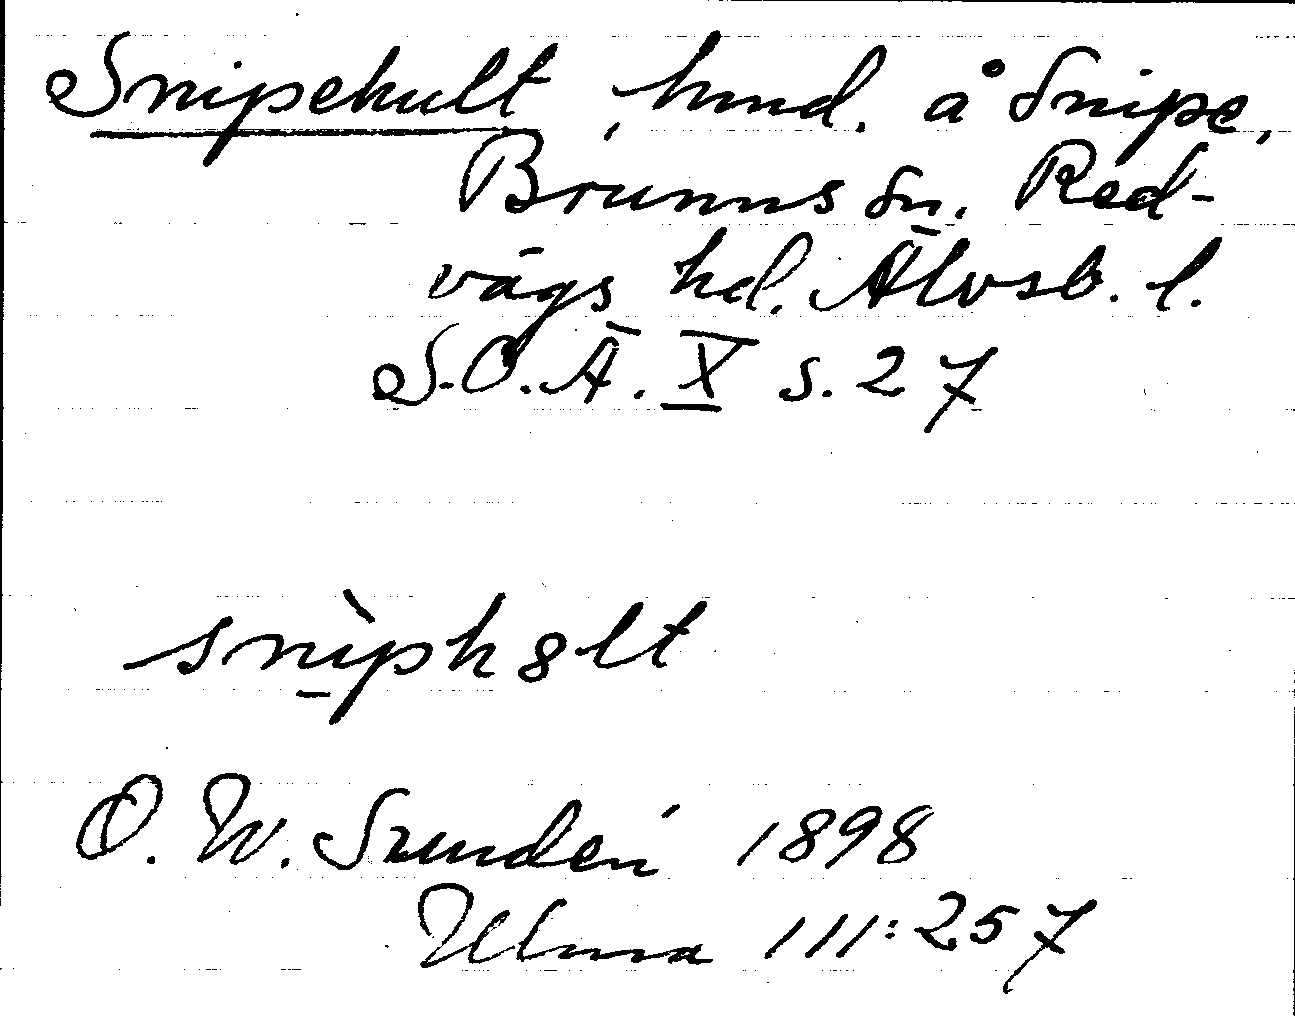 Snipekult, hmd. å Snipe,
Brunns sn. Red-
vägs hd. Älvsb. l.
S.O.Ä. X s. 27
snìpk8lt
O. W. Sundén 1898
Ulma 111:257